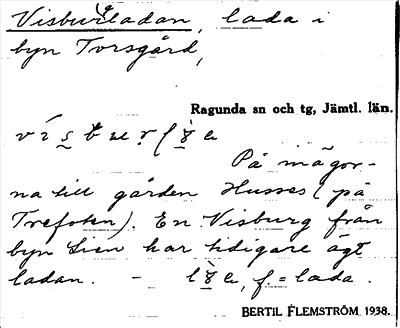 Visburladan, lada i
byn Torsgård,
Ragunda sn och tg, Jämtl. län.
På mägor-
na till gården Husses (på
Trefoten). En Visburg från
byn Lien har tidigare ägt
ladan. - f. = lada.
BERTIL FLEMSTRÖM 1938.